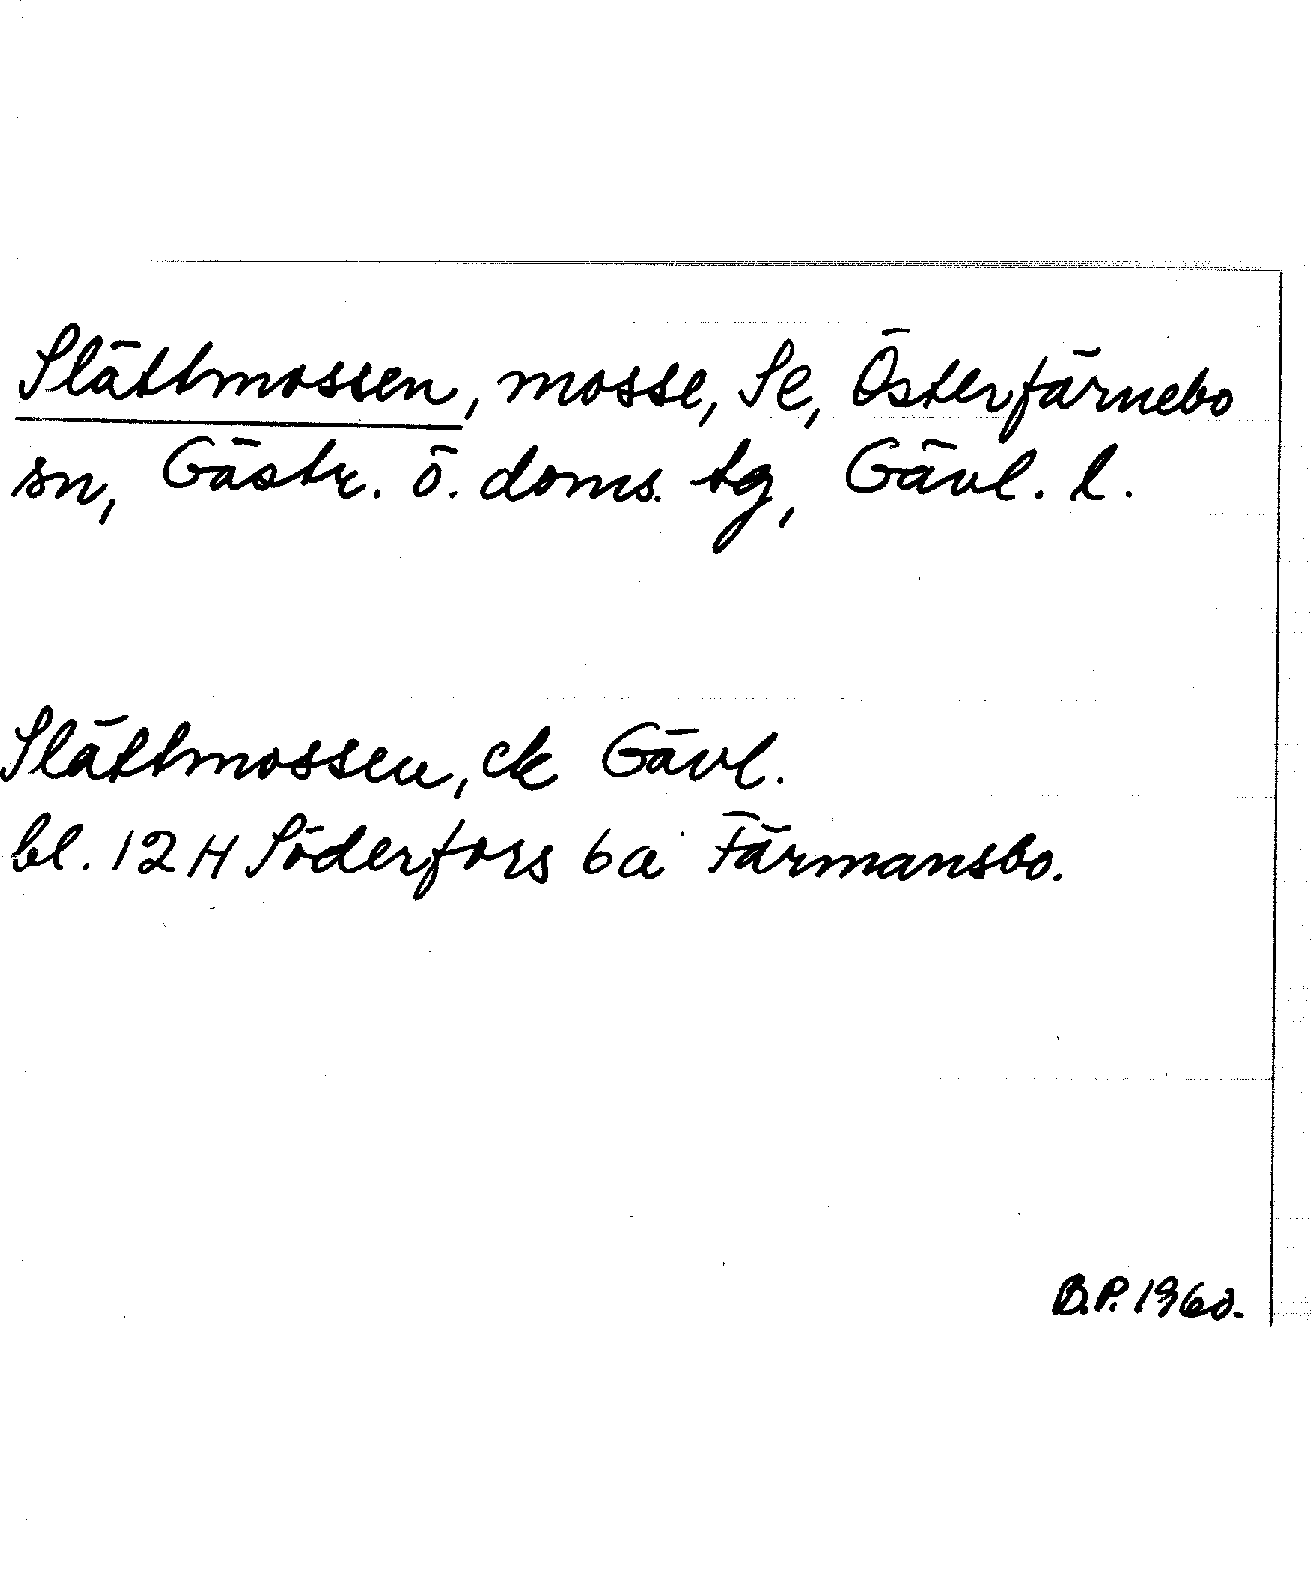 Slättmossen, mosse, Se, Österfärnebo
sn, Gästr. ö. doms. tg, Gävl. l.
Slättmossen, ek Gävl.
bl. 12 H Söderfors 6a Färmansbo.
B.P. 1960.